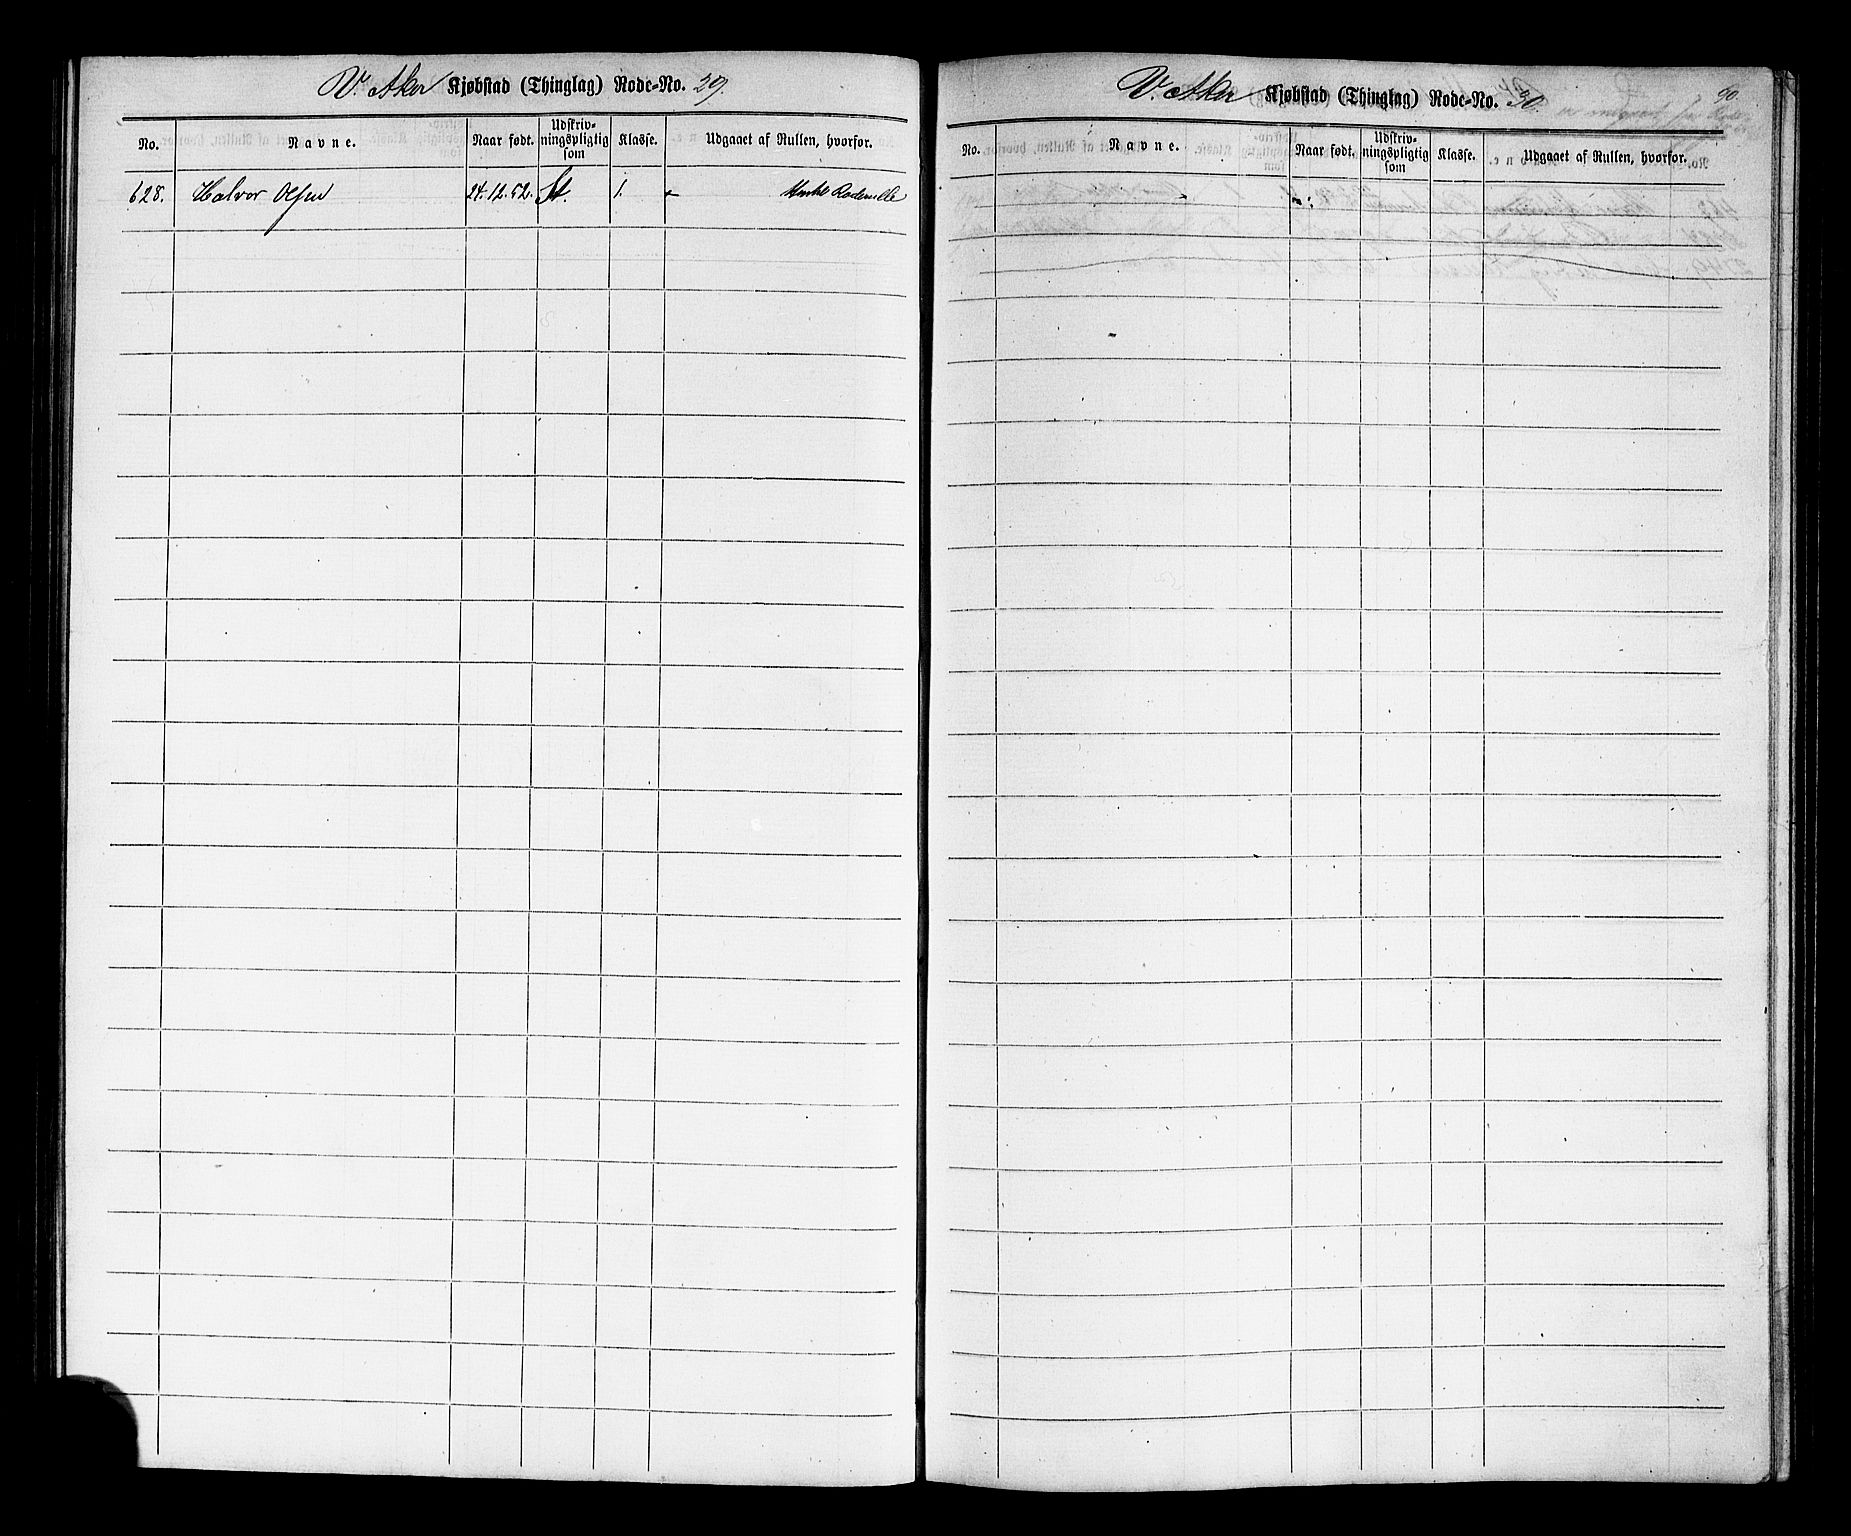 V. Aker Kjøbstad (Thinglag) Rode-No. 29.
No. Navne. Naar født. Udskriv-ningspligtig som Klasse. Udgaaet af Rullen, hvorfor.
628. Halvor Olsen 24.12.52. St. 1. -
90.
V. Aker Kjøbstad (Thinglag) Rode-No. 30.
No. Navne. Naar født. Udskriv-ningspligtig som Klasse. Udgaaet af Rullen, hvorfor.